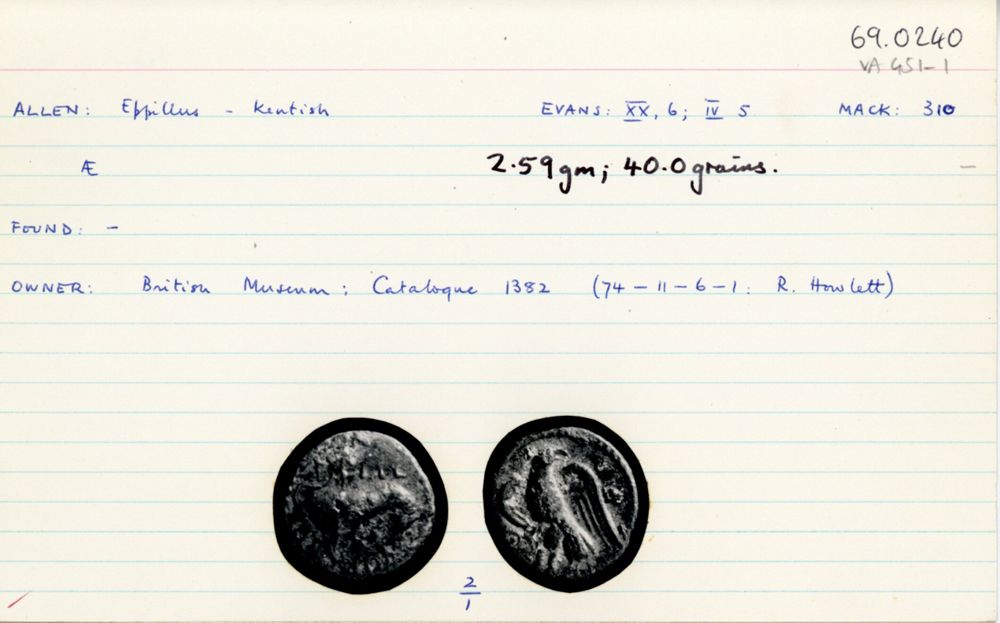 69.0240
VA 451-1
ALLEN: Eppillus - Kentish EVANS: XX, 6; IV 5 MACK: 310
Æ 2.59gm; 40.0grains. -
FOUND: -
OWNER: British Museum; Catalogue 1382 (74-11-6-1: R. Howlett)
2
1